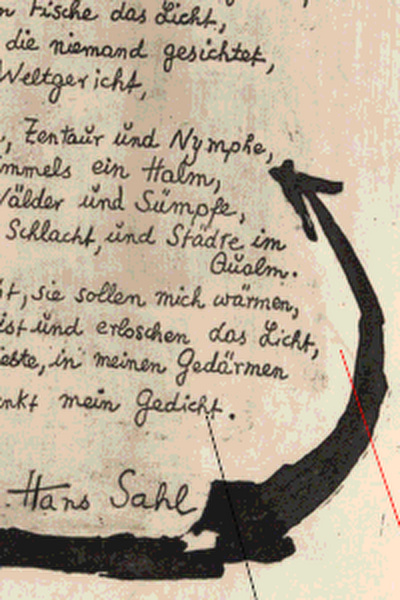 Fische das Licht,
die niemand gesichtet,
Weltgericht,
Zentaur und Nymphe,
ein Halm,
Wälder und Sümpfe,
Schlacht, und Städte im
Qualm.
sie sollen mich wärmen,
ist und erloschen das Licht,
in meinen Gedärmen
mein Gedicht.
Hans Sahl